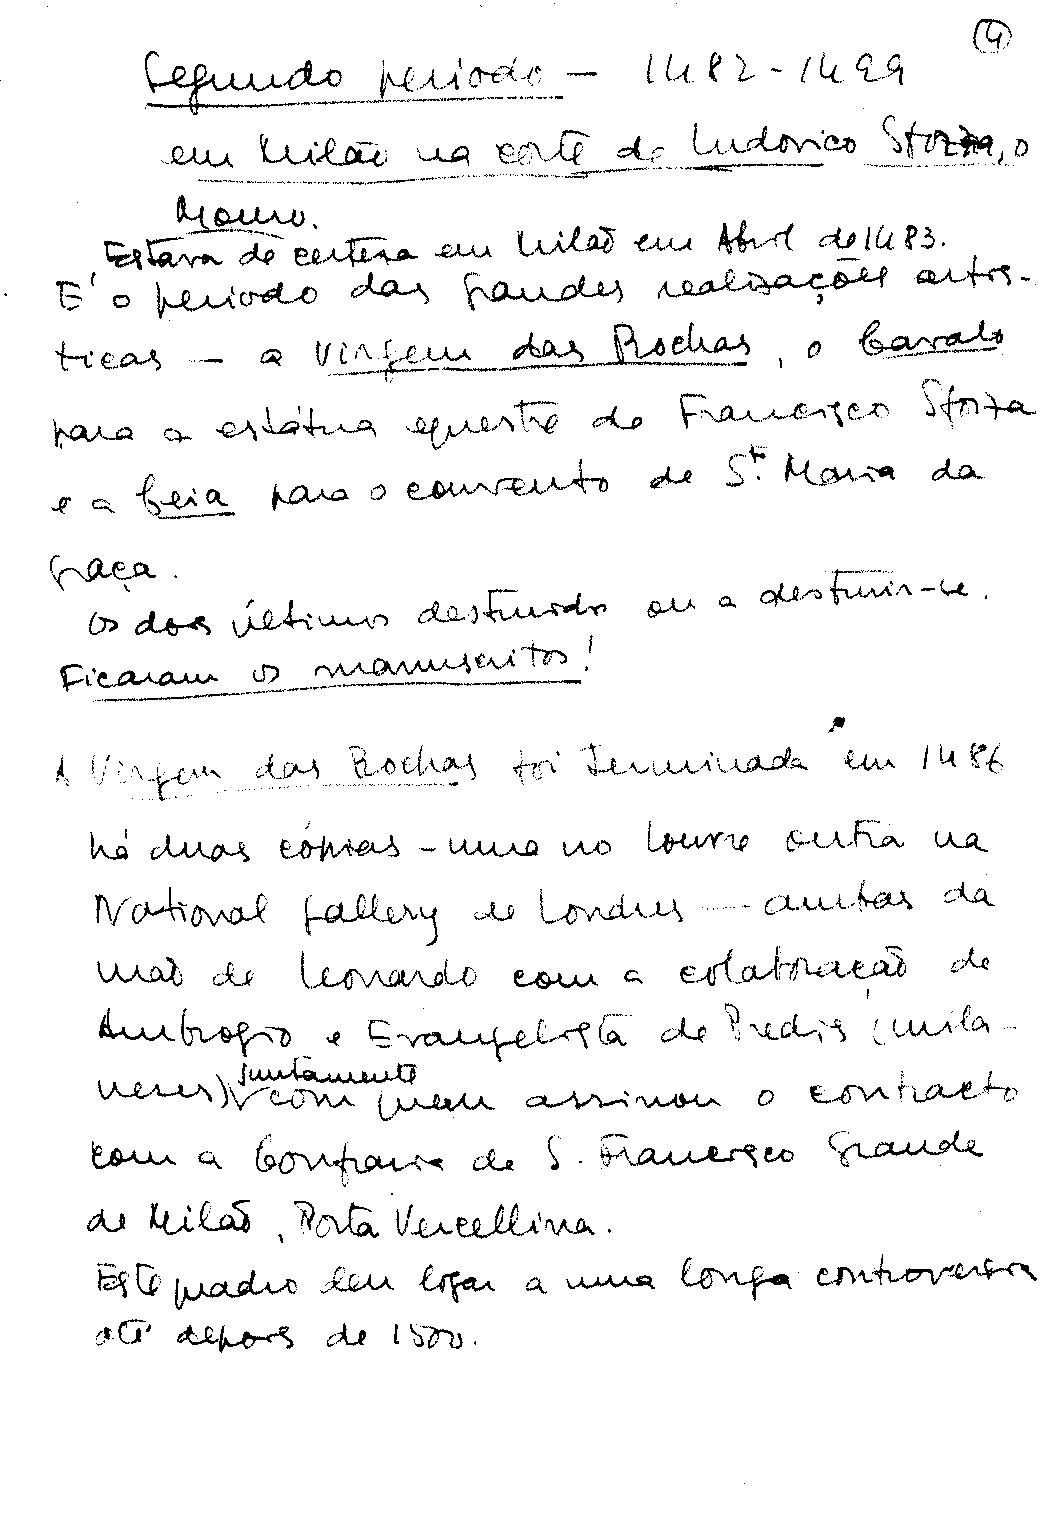 4
Segundo periodo - 1482-1499
em Milão na corte de Ludovico Sforza, o
Mouro.
Estava de certeza em Milão em Abril de 1483.
É o periodo das grandes realizações artis-
ticas - a Virgem das Rochas, o Cavalo
para a estátua equestre de Francisco Sforza
e a Ceia para o convento de Sta Maria da
Graça.
Os dois últimos destruidos ou a destruir-se.
Ficaram os manuscritos!
A Virgem das Rochas foi terminada em 1486
há duas cópias - uma no Louvre outra na
National Gallery de Londres - ambas da
mão de Leonardo com a colaboração de
Ambrogio e Evangelista de Predis (mila-
neses) juntamente com quem assinou o contracto
com a Confraria de S. Francisco Grande
de Milão, Porta Vercellina.
Este quadro deu logar a uma longa controversia
até depois de 1500.